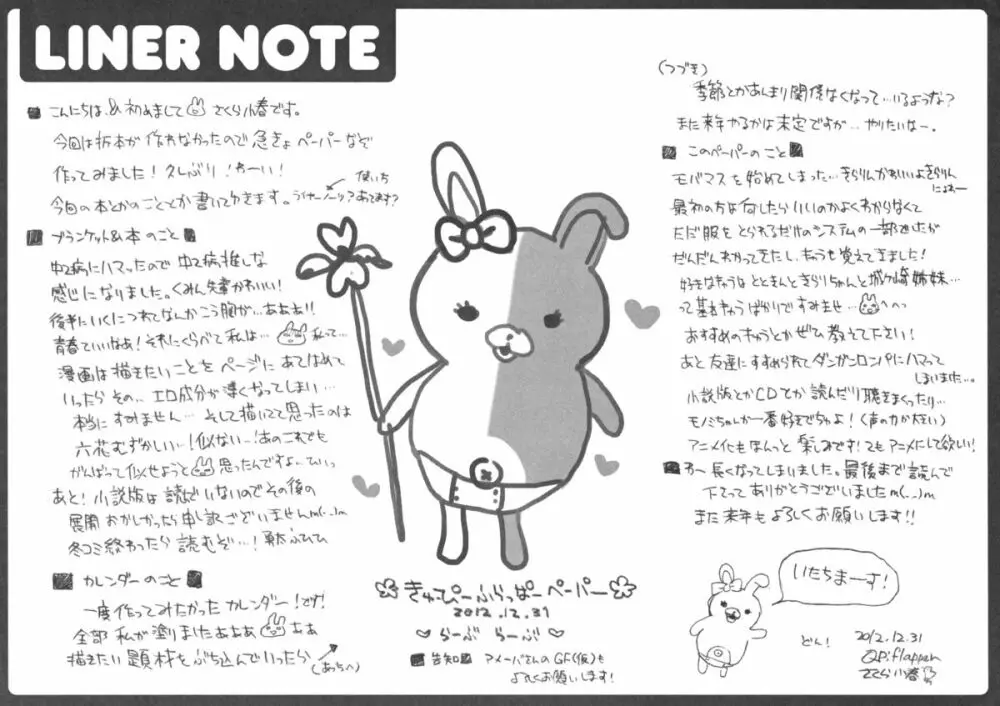 LINER NOTE
■ こんにちは、&初めまして さくら小春です。
今回は折本が作れなかったので急きょペーパーなぞ
作ってみました!久しぶり!わーい!
今回の本とかのこととか書いてゆきます。ライナーノーツ?あってます?
使い方
■ ブランケット&本のこと ■
中2病にハマったので中2病推しな
感じになりました。くみん先輩かわいい!
後半にいくにつれてなんかこう胸が…あああ!!
青春ていいなあ!それにくらべて私は… 私って…
漫画は描きたいことをページにあてはめて
いったらその..エロ成分が薄くなってしまい…
本当にすみません…そして描いてて思ったのは
六花むずかしい…!似ない…!あのこれでも
がんばって似せようと 思ったんですよ..
あと!小説版は読んでいないのでその後の
展開おかしかったら申し訳ございませんm(..)m
冬コミ終わったら読むぞ…!勇太
■ カレンダーのこと ■
一度作ってみたかったカレンダー!です!
全部私が塗りましたぁぁぁ ぁぁ
描きたい題材をぶち込んでいったら
(あっちへ)
きゅーぴーふらっぱーペーパー
2012.12.31
らーぶ らーぶ
■ 告知 ■ アメーバさんのGF(仮)も
よろしくお願いします!
(つづき)
季節とかあんまり関係なくなって…いるような?
また来年やるかは未定ですが…やりたいなー。
■ このペーパーのこと ■
モバマスを始めてしまった…きらりんかわいいよきらりん
にょわー
最初の方は何したらいいのかよくわからなくて
ただ服をとられるだけのシステムの一部でしたが
だんだんわかってきたし、キャラも覚えてきました!
好きなキャラはとときんときらりちゃんと城ヶ崎姉妹…
って基本キャラばかりですみませ… へへっ
おすすめのキャラとかぜひ教えて下さい!
あと友達にすすめられてダンガンロンパにハマって
しまいました…。
小説版とかCDとか読んだり聴きまくったり…
モノミちゃんが一番好きでちゅよ!(声の力か大きい)
アニメ化もほんっと楽しみです!2もアニメにして欲しい!
■ わー長くなってしまいました。最後まで読んで
下さってありがとうございましたm(..)m
また来年もよろしくお願いします!!
いたちまーす!
どん!
2012.12.31
QP:flapper
さくら小春